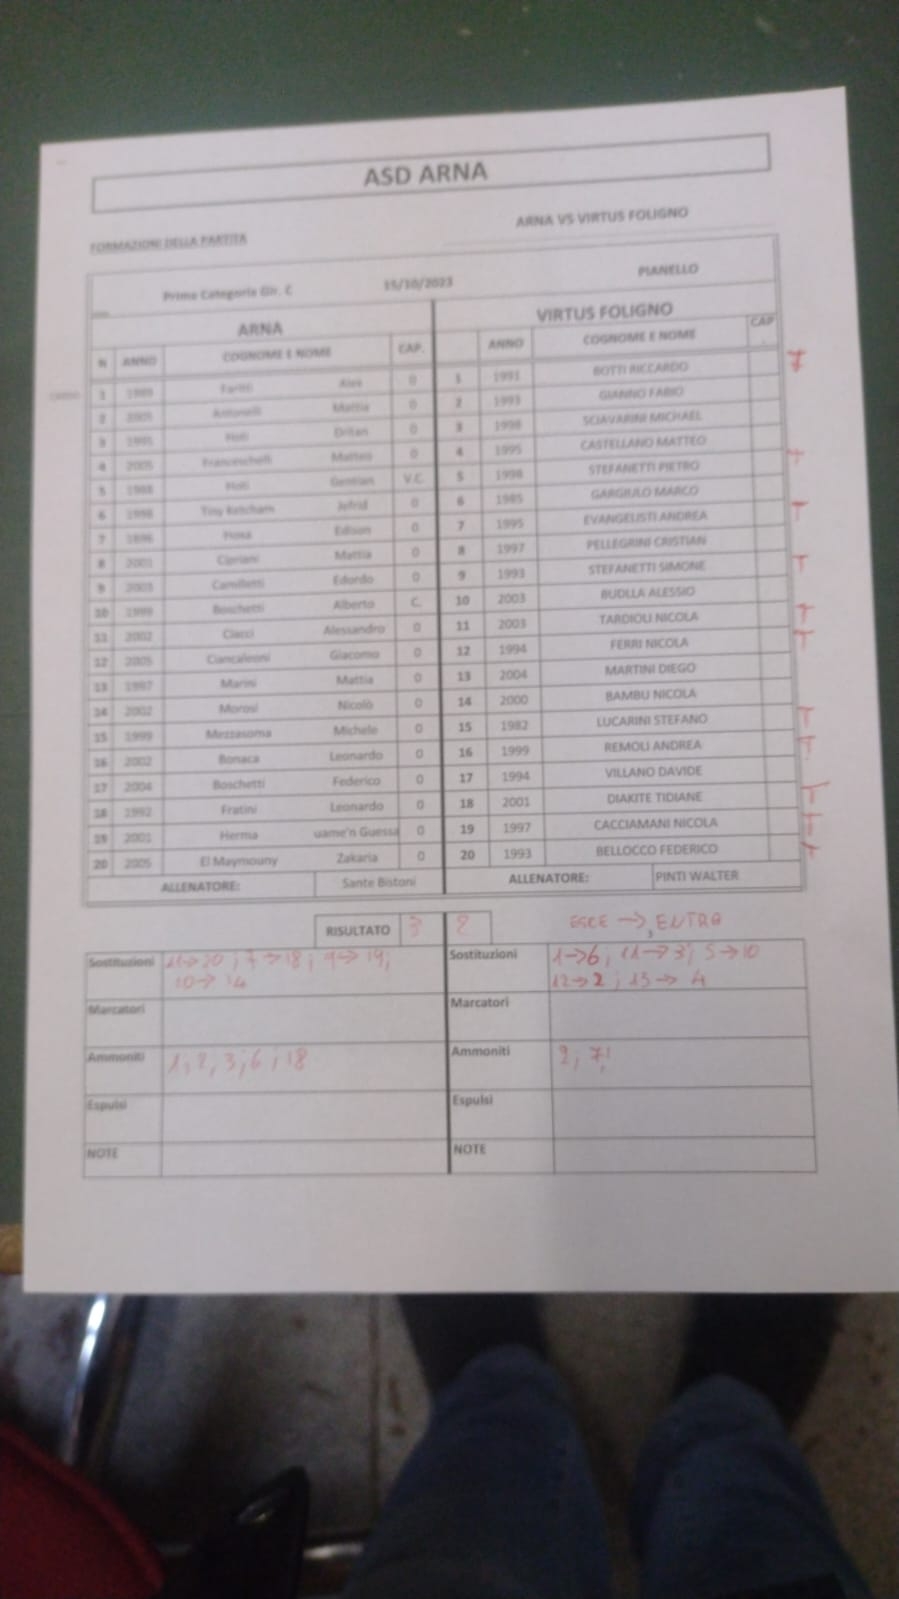 ASD ARNA
ARNA VS VIRTUS FOLIGNO
FORMAZIONI DELLA PARTITA
Prima Categoria Gir. C 15/10/2023 PIANELLO
ARNA VIRTUS FOLIGNO
N ANNO COGNOME E NOME CAP. ANNO COGNOME E NOME CAP.
1 1989 Alex 0 1 1991 BOTTI RICCARDO T
2 2005 Antonelli Mattia 0 2 1993 GIANNO FABIO
3 1995 Hoti Dritan 0 3 1998 SCIAVARINI MICHAEL
4 2005 Franceschelli Matteo 0 4 1995 CASTELLANO MATTEO
5 1988 Hoti Gentian V.C. 5 1998 STEFANETTI PIETRO T
6 1998 Tiny Ketcham 0 6 1985 GARGIULO MARCO
7 1996 Hoxa Edison 0 7 1995 EVANGELISTI ANDREA T
8 2001 Cipriani Mattia 0 8 1997 PELLEGRINI CRISTIAN
9 2003 Camilletti Edordo 0 9 1993 STEFANETTI SIMONE T
10 1999 Boschetti Alberto C. 10 2003 BUDLLA ALESSIO
11 2002 Ciacci Alessandro 0 11 2003 TARDIOLI NICOLA T
12 2005 Ciancaleoni Giacomo 0 12 1994 FERRI NICOLA T
13 1997 Marini Mattia 0 13 2004 MARTINI DIEGO
14 2002 Morosi Nicolò 0 14 2000 BAMBU NICOLA
15 1999 Mezzasoma Michele 0 15 1982 LUCARINI STEFANO T
16 2002 Bonaca Leonardo 0 16 1999 REMOLI ANDREA T
17 2004 Boschetti Federico 0 17 1994 VILLANO DAVIDE
18 1992 Fratini Leonardo 0 18 2001 DIAKITE TIDIANE T
19 2001 Herma uame'n Guessa 0 19 1997 CACCIAMANI NICOLA T
20 2005 El Maymouny Zakaria 0 20 1993 BELLOCCO FEDERICO T
ALLENATORE: Sante Bistoni ALLENATORE: PINTI WALTER
RISULTATO 3 2 ESCE → ENTRA
Sostituzioni 11→20; 7→18; 9→19; Sostituzioni 1→6; 11→3; 5→10
10→14 12→2; 13→4
Marcatori Marcatori
Ammoniti 1, 2, 3; 6; 18 Ammoniti 2; 7;
Espulsi Espulsi
NOTE NOTE